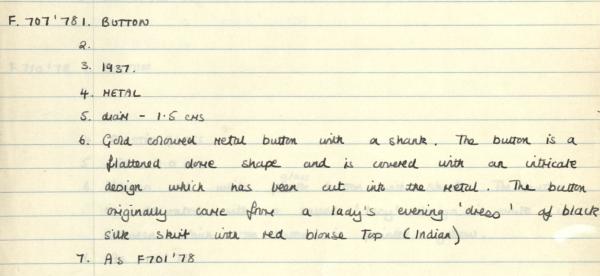 F. 707'78 1. BUTTON
2.
3. 1937.
4. METAL
5. diam - 1.5 cms
6. Gold coloured metal button with a shank. The button is a
flattened dome shape and is covered with an intricate
design which has been cut into the metal. The button
originally came from a lady's evening 'dress' of black
silk skirt with red blouse top (Indian)
7. As F701'78